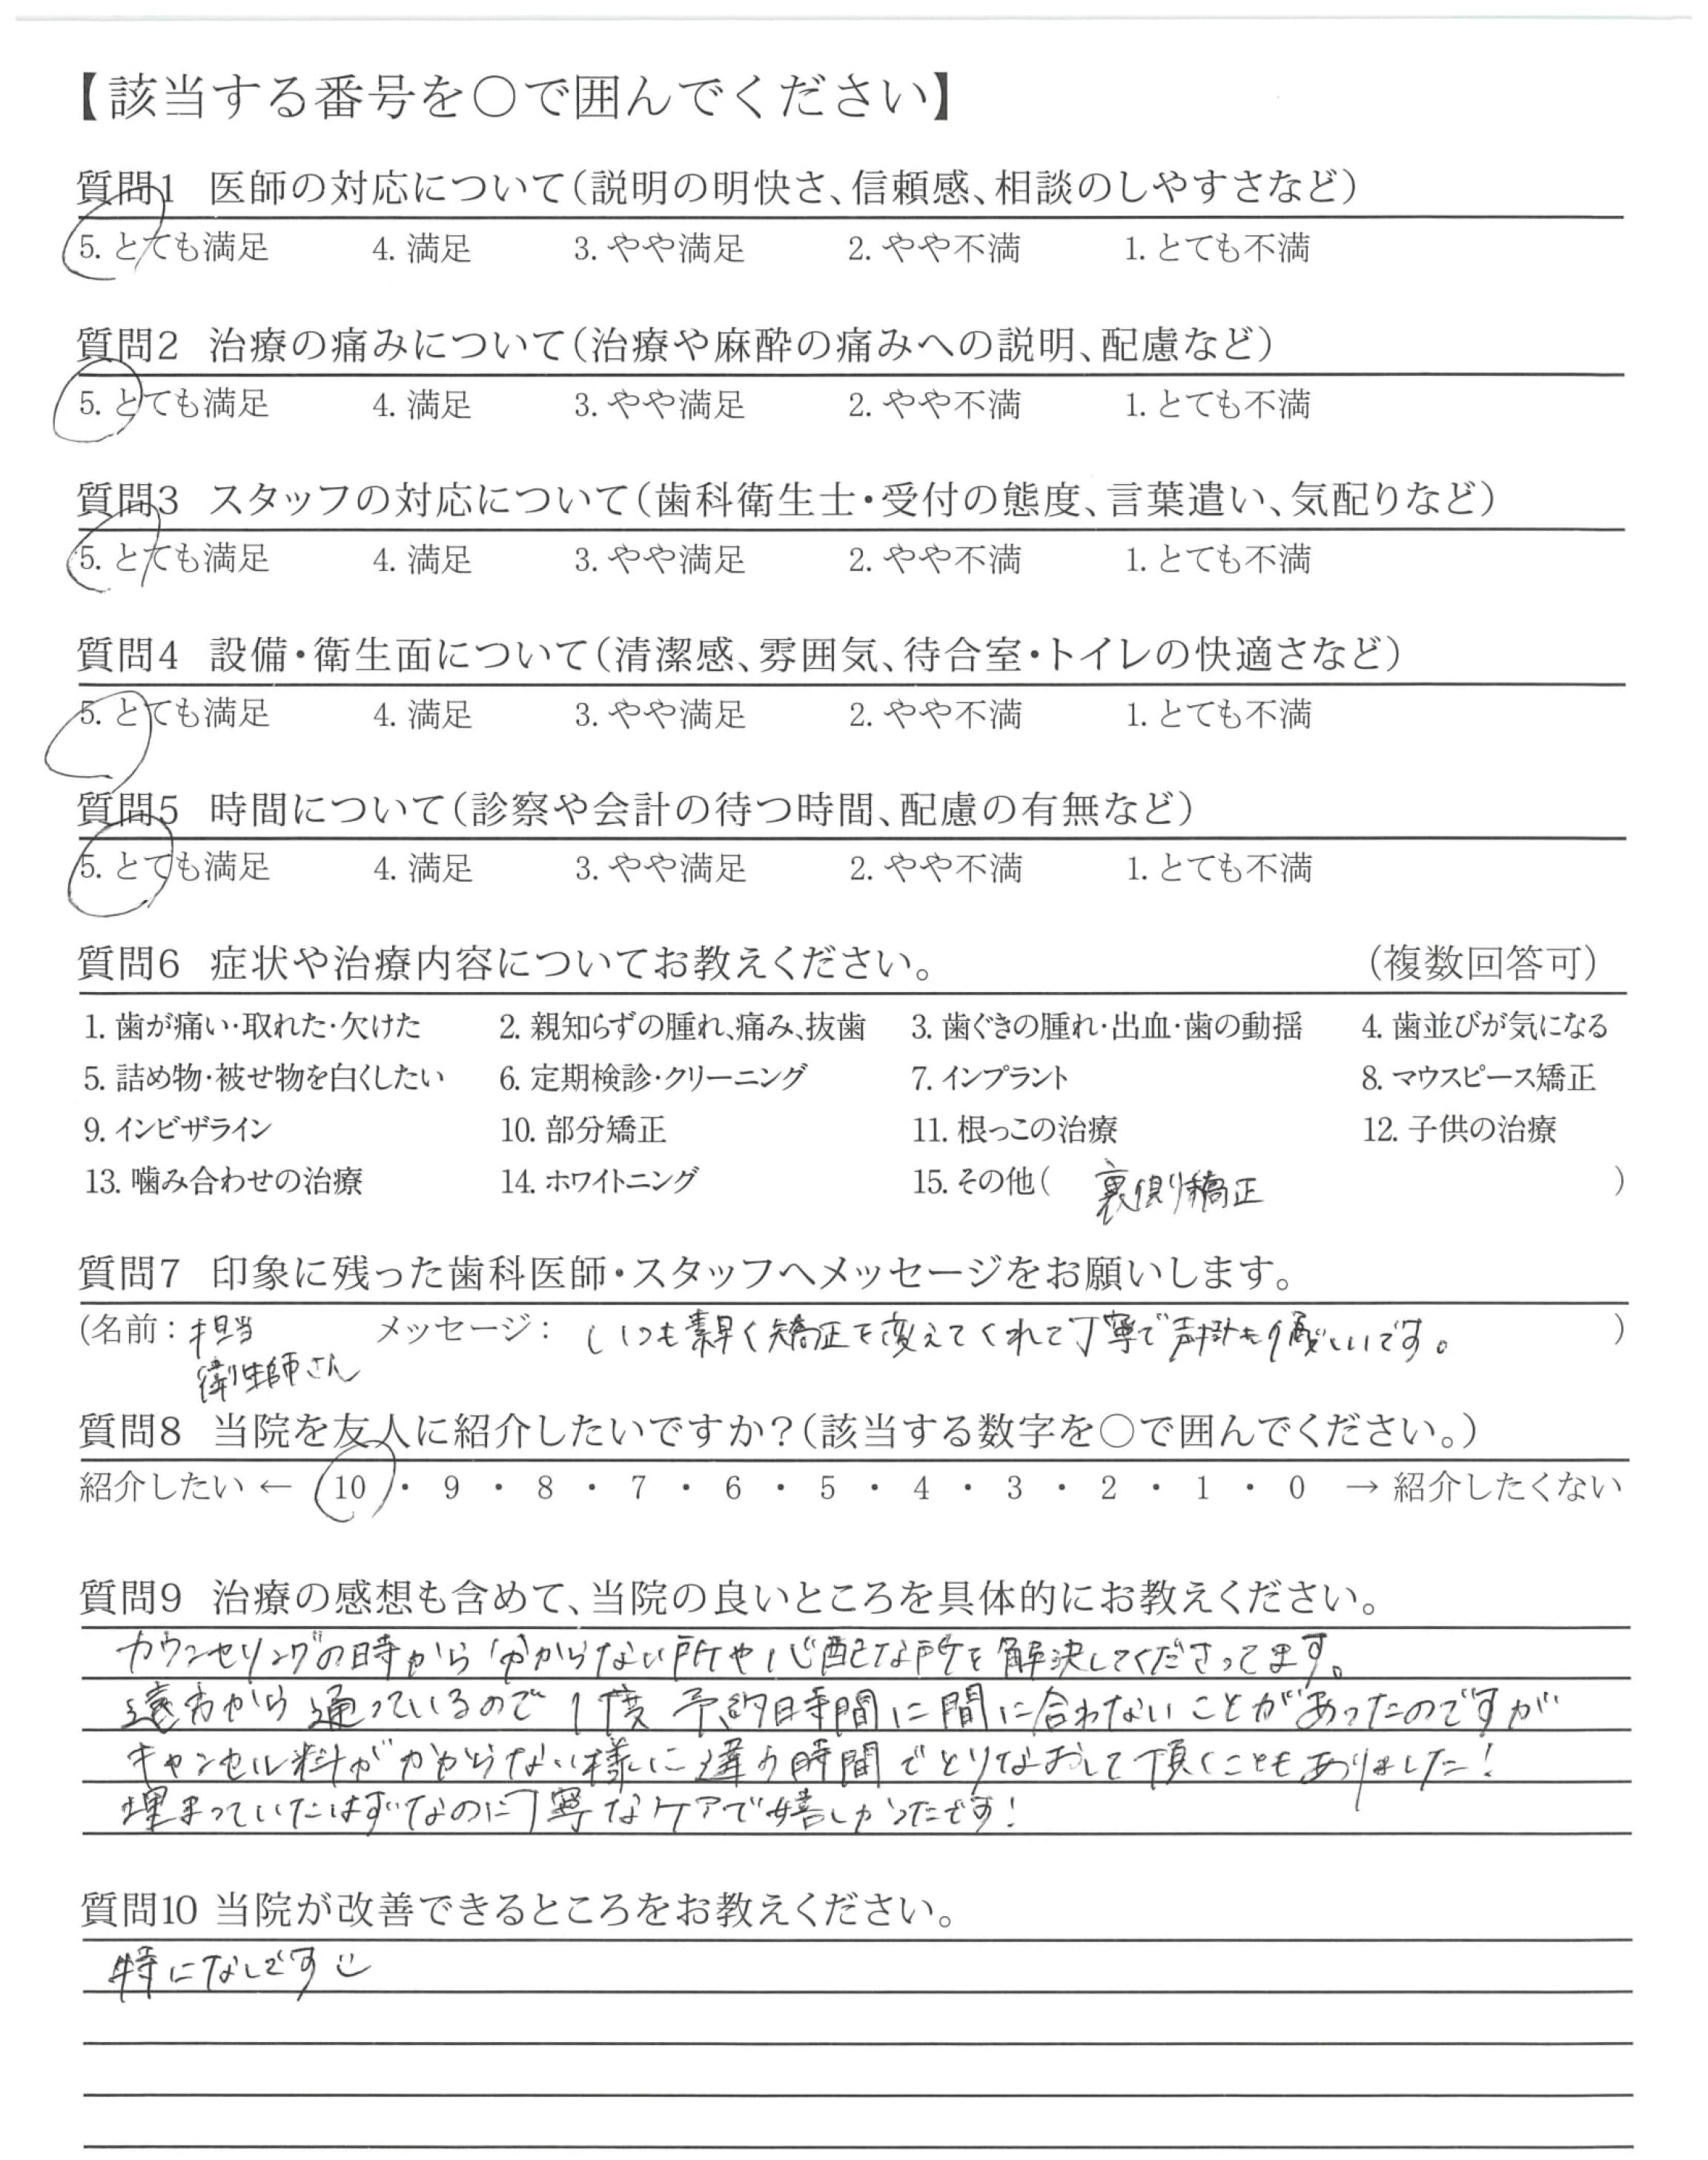 【該当する番号を〇で囲んでください】
質問1 医師の対応について(説明の明快さ、信頼感、相談のしやすさなど)
5. とても満足 4. 満足 3. やや満足 2. やや不満 1. とても不満
質問2 治療の痛みについて(治療や麻酔の痛みへの説明、配慮など)
5. とても満足 4. 満足 3. やや満足 2. やや不満 1. とても不満
質問3 スタッフの対応について(歯科衛生士・受付の態度、言葉遣い、気配りなど)
5. とても満足 4. 満足 3. やや満足 2. やや不満 1. とても不満
質問4 設備・衛生面について(清潔感、雰囲気、待合室・トイレの快適さなど)
5. とても満足 4. 満足 3. やや満足 2. やや不満 1. とても不満
質問5 時間について(診察や会計の待つ時間、配慮の有無など)
5. とても満足 4. 満足 3. やや満足 2. やや不満 1. とても不満
質問6 症状や治療内容についてお教えください。 (複数回答可)
1. 歯が痛い・取れた・欠けた 2. 親知らずの腫れ、痛み、抜歯 3. 歯ぐきの腫れ・出血・歯の動揺 4. 歯並びが気になる
5. 詰め物・被せ物を白くしたい 6. 定期検診・クリーニング 7. インプラント 8. マウスピース矯正
9. インビザライン 10. 部分矯正 11. 根っこの治療 12. 子供の治療
13. 噛み合わせの治療 14. ホワイトニング 15. その他( 裏側矯正 )
質問7 印象に残った歯科医師・スタッフへメッセージをお願いします。
(名前: 担当 メッセージ: いつも素早く矯正を変えてくれて丁寧で声掛も優しいです。 )
衛生師さん
質問8 当院を友人に紹介したいですか?(該当する数字を〇で囲んでください。)
紹介したい ← 10 ・ 9 ・ 8 ・ 7 ・ 6 ・ 5 ・ 4 ・ 3 ・ 2 ・ 1 ・ 0 → 紹介したくない
質問9 治療の感想も含めて、当院の良いところを具体的にお教えください。
カウンセリングの時から分からない所や心配な所を解決してくださってます。
遠方から通っているので1度予約時間に間に合わないことがあったのですが
キャンセル料がかからない様に違う時間でとりなおして頂くこともありました!
埋まっていたはずなのに丁寧なケアで嬉しかったです!
質問10 当院が改善できるところをお教えください。
特になしです